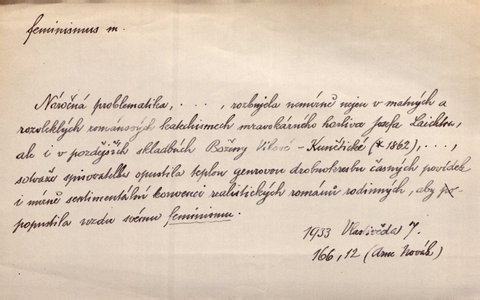 feminismus m.
Náročná problematika, . . . , rozbujela neméně nejen v matných a
rozvleklých románových katechismech mravokárného horlivce Josefa Laichtra,
ale i v pozdějších skladbách Boženy Vikové-Kunětické (* 1862), . . . ,
sotvaže spisovatelka opustila teplou genrovou drobnokresbu časných povídek
i méně sentimentální konvenci realistických románů rodinných, aby
popustila uzdu svému feminismu.
1933 Vlastivěda 7.
166, 12 (Arne Novák)